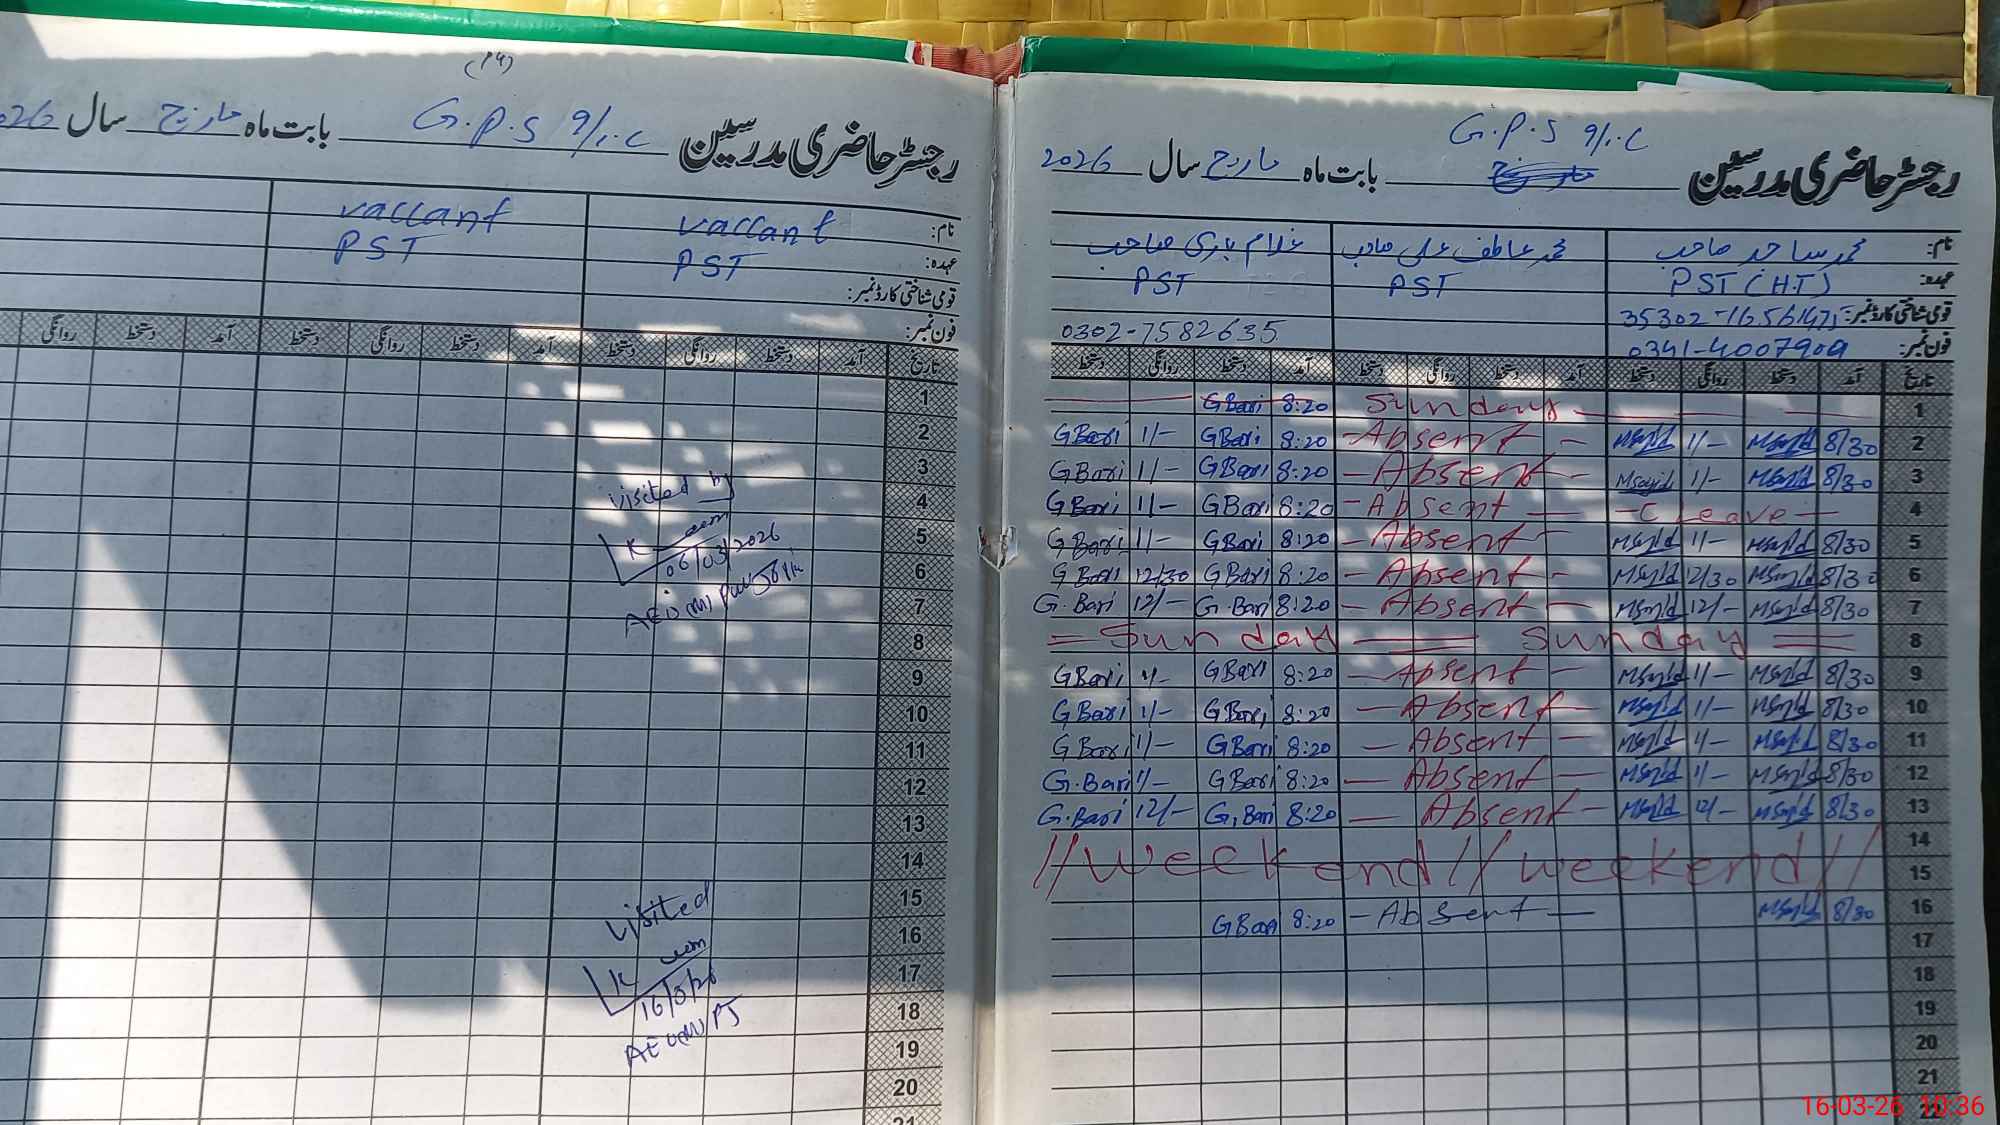 (۱۹)
رجسٹر حاضری مدرسین G.P.S 9/1.C بابت ماہ مارچ سال 2026
نام: vaccant vaccant
عہدہ: PST PST
قومی شناختی کارڈ نمبر:
فون نمبر:
تاریخ آمد دستخط روانگی دستخط آمد دستخط روانگی دستخط آمد دستخط روانگی
1
2
3
4
5
6
7
8
9
10
11
12
13
14
15
16
17
18
19
20
21
visited by
06/03/2026
visited
16/3/26
G.P.S 9/1.C
رجسٹر حاضری مدرسین بابت ماہ مارچ سال 2026
نام: محمد ساجد صاحب محمد عاطف علی صاحب غلام باری صاحب
عہدہ: PST (H.T) PST PST
قومی شناختی کارڈ نمبر:
فون نمبر: 0341-4007909 0302-7582635
تاریخ آمد دستخط روانگی دستخط آمد دستخط روانگی دستخط آمد دستخط روانگی دستخط
GBari 8:20 Sunday 1
GBari 1/- GBari 8:20 - Absent - MSajid 1/- MSajid 8/30 2
GBari 1/- GBari 8:20 - Absent - MSajid 1/- MSajid 8/30 3
GBari 1/- GBari 8:20 - Absent - - C leave - 4
GBari 1/- GBari 8:20 - Absent - MSajid 1/- MSajid 8/30 5
GBari 12/30 GBari 8:20 - Absent - MSajid 12/30 MSajid 8/30 6
G.Bari 12/- G.Bari 8:20 - Absent - MSajid 12/- MSajid 8/30 7
= Sunday = Sunday = 8
GBari 1/- GBari 8:20 - Absent - MSajid 1/- MSajid 8/30 9
GBari 1/- GBari 8:20 - Absent - MSajid 1/- MSajid 8/30 10
GBari 1/- GBari 8:20 - Absent - MSajid 1/- MSajid 8/30 11
G.Bari 1/- GBari 8:20 - Absent - MSajid 1/- MSajid 8/30 12
G.Bari 12/- G.Bari 8:20 - Absent - MSajid 12/- MSajid 8/30 13
14
// Weekend // Weekend // 15
GBari 8:20 - Absent - MSajid 8/30 16
17
18
19
20
21
22
16-03-26 10:36